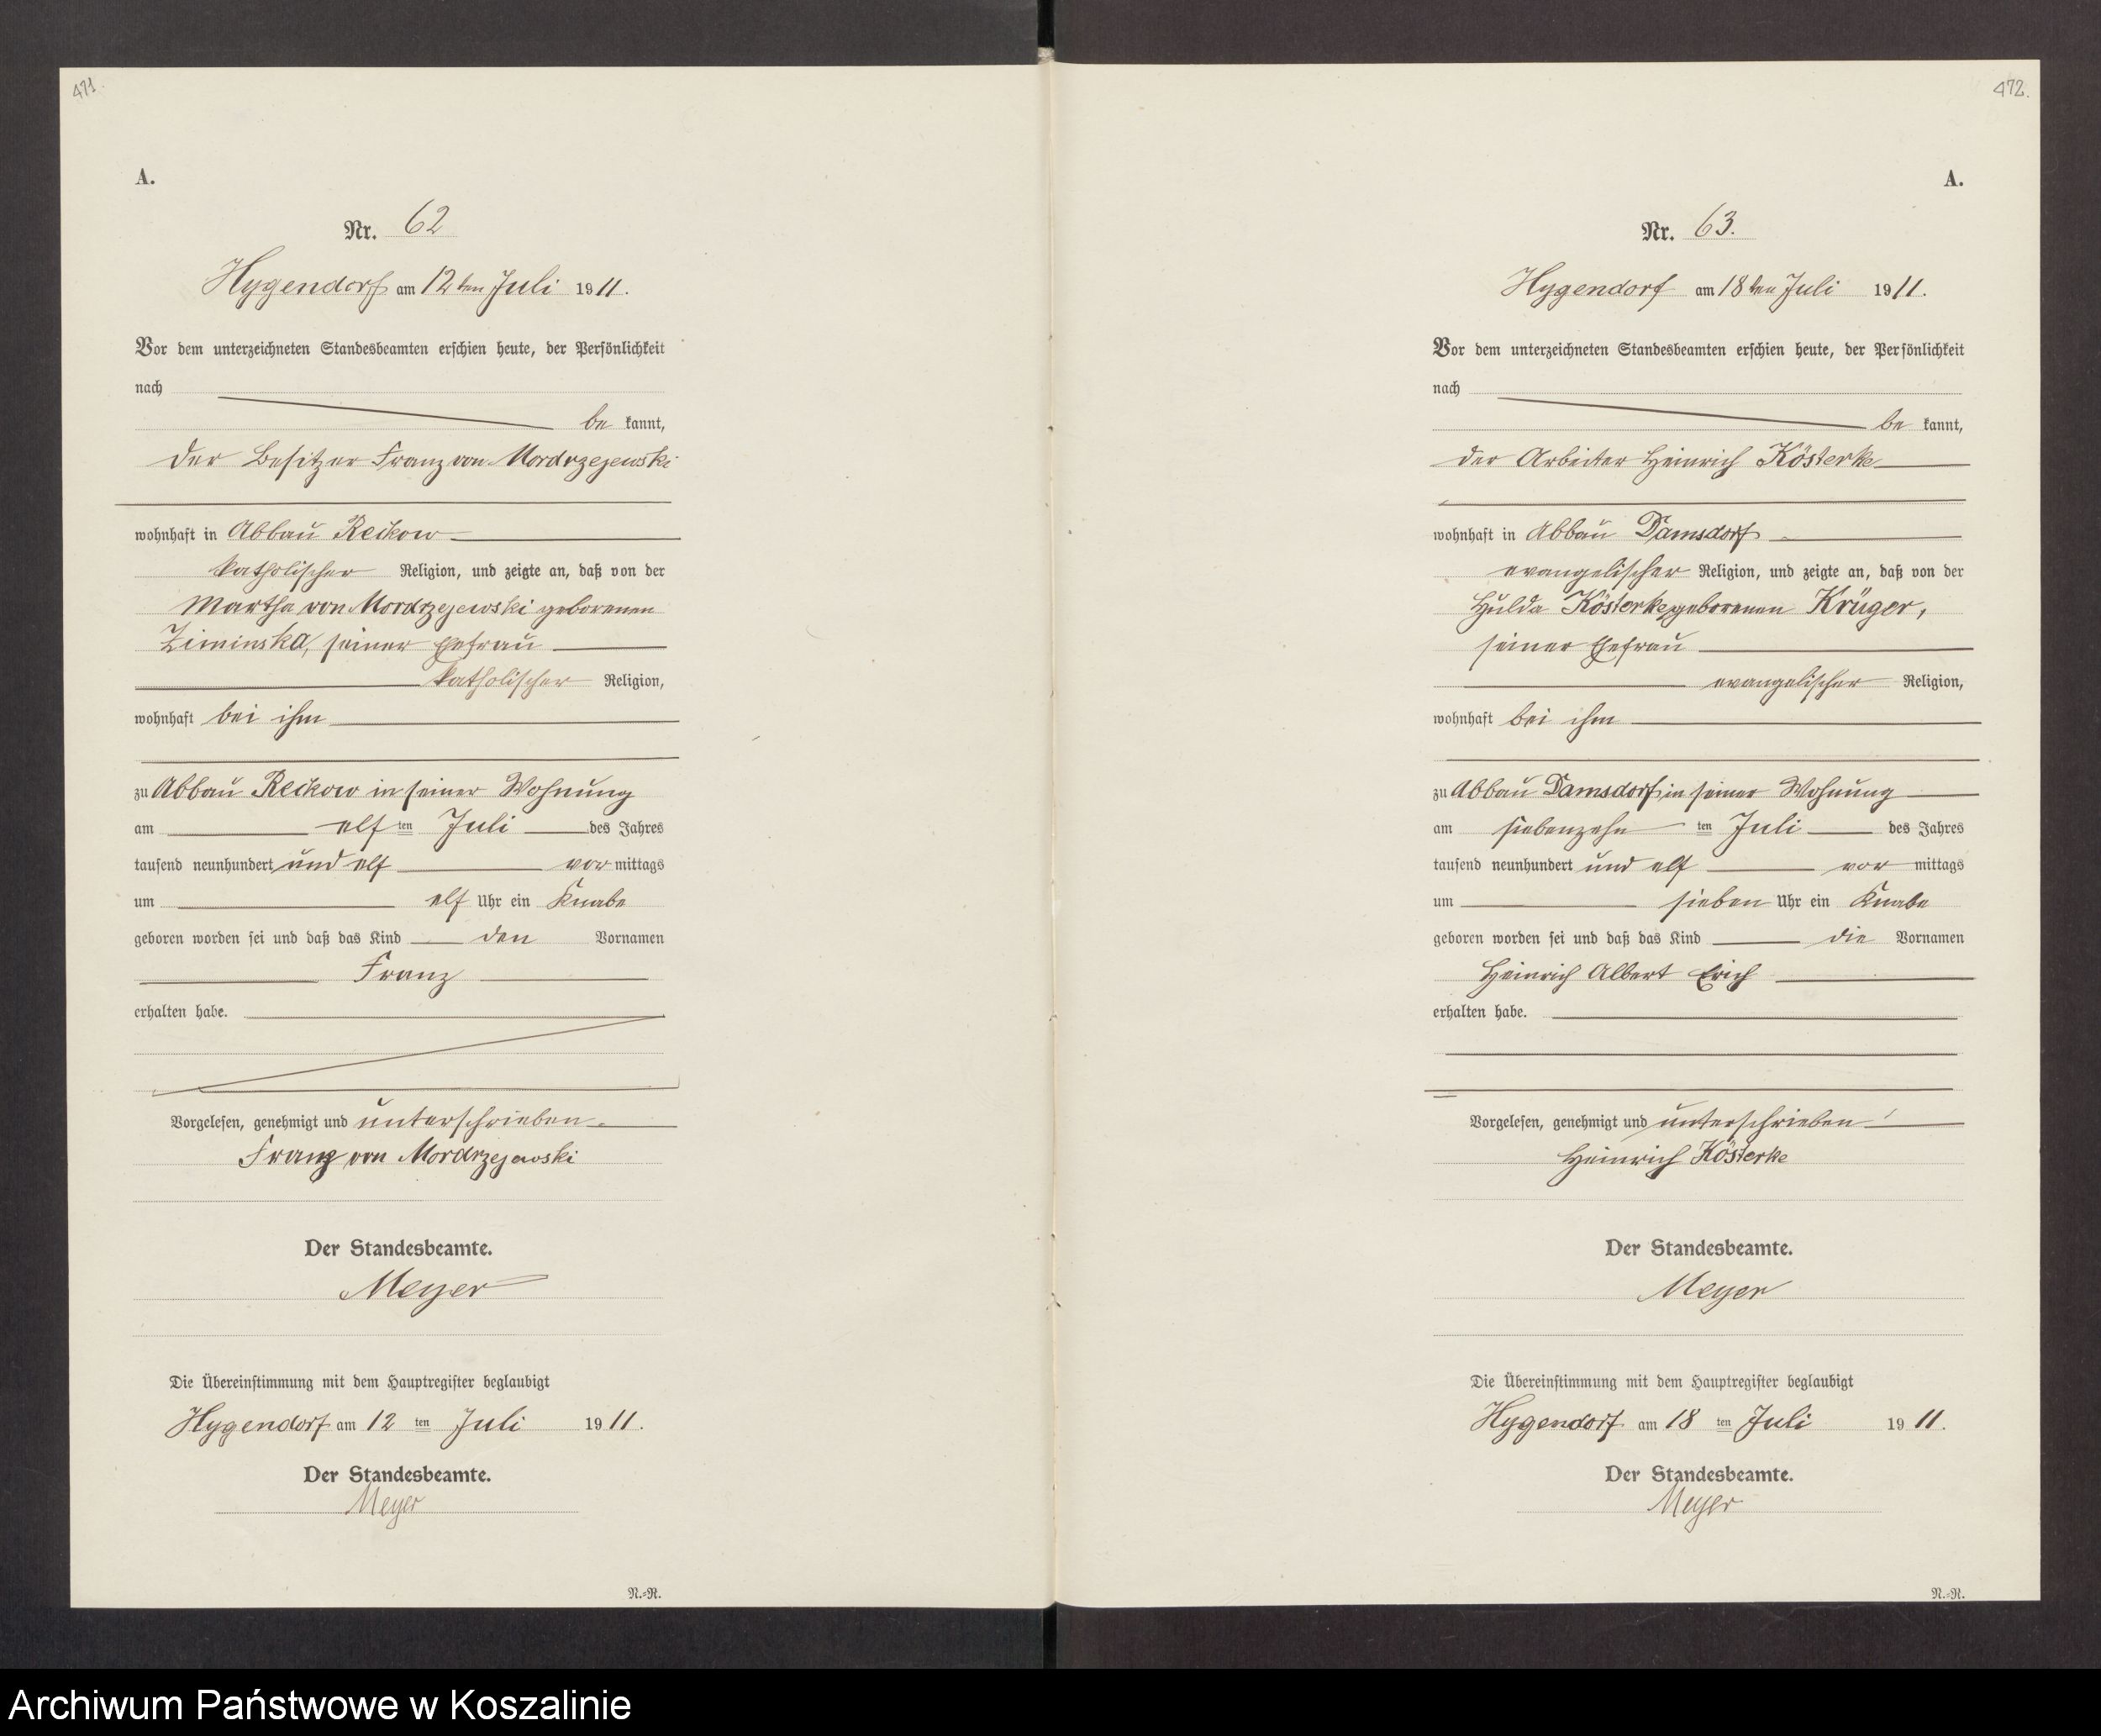 471.
A.
Nr. 62
Hygendorf am 12ten Juli 1911.
Vor dem unterzeichneten Standesbeamten erschien heute, der Persönlichkeit
nach
be kannt,
der Besitzer Franz von Mordrzejewski
wohnhaft in Abbau Reckow
katholischer Religion, und zeigte an, daß von der
Martha von Mordrzejewski geborenen
Ziminska, seiner Ehefrau
katholischer Religion,
wohnhaft bei ihm
zu Abbau Reckow in seiner Wohnung
am elf ten Juli des Jahres
tausend neunhundert und elf vor mittags
um elf Uhr ein Knabe
geboren worden sei und daß das Kind den Vornamen
Franz
erhalten habe.
Vorgelesen, genehmigt und unterschrieben.
Franz von Mordrzejewski
Der Standesbeamte.
Meyer
Die Übereinstimmung mit dem Hauptregister beglaubigt
Hygendorf am 12 ten Juli 1911.
Der Standesbeamte.
Meyer
N.-R.
472.
A.
Nr. 63.
Hygendorf am 18ten Juli 1911.
Vor dem unterzeichneten Standesbeamten erschien heute, der Persönlichkeit
nach
be kannt,
der Arbeiter Heinrich Kösterke
wohnhaft in Abbau Damsdorf
evangelischer Religion, und zeigte an, daß von der
Hulda Kösterke geborenen Krüger,
seiner Ehefrau
evangelischer Religion,
wohnhaft bei ihm
zu Abbau Damsdorf in seiner Wohnung
am siebenzehn ten Juli des Jahres
tausend neunhundert und elf vor mittags
um sieben Uhr ein Knabe
geboren worden sei und daß das Kind die Vornamen
Heinrich Albert Erich
erhalten habe.
Vorgelesen, genehmigt und unterschrieben
Heinrich Kösterke
Der Standesbeamte.
Meyer
Die Übereinstimmung mit dem Hauptregister beglaubigt
Hygendorf am 18 ten Juli 1911.
Der Standesbeamte.
Meyer
N.-R.
Archiwum Państwowe w Koszalinie